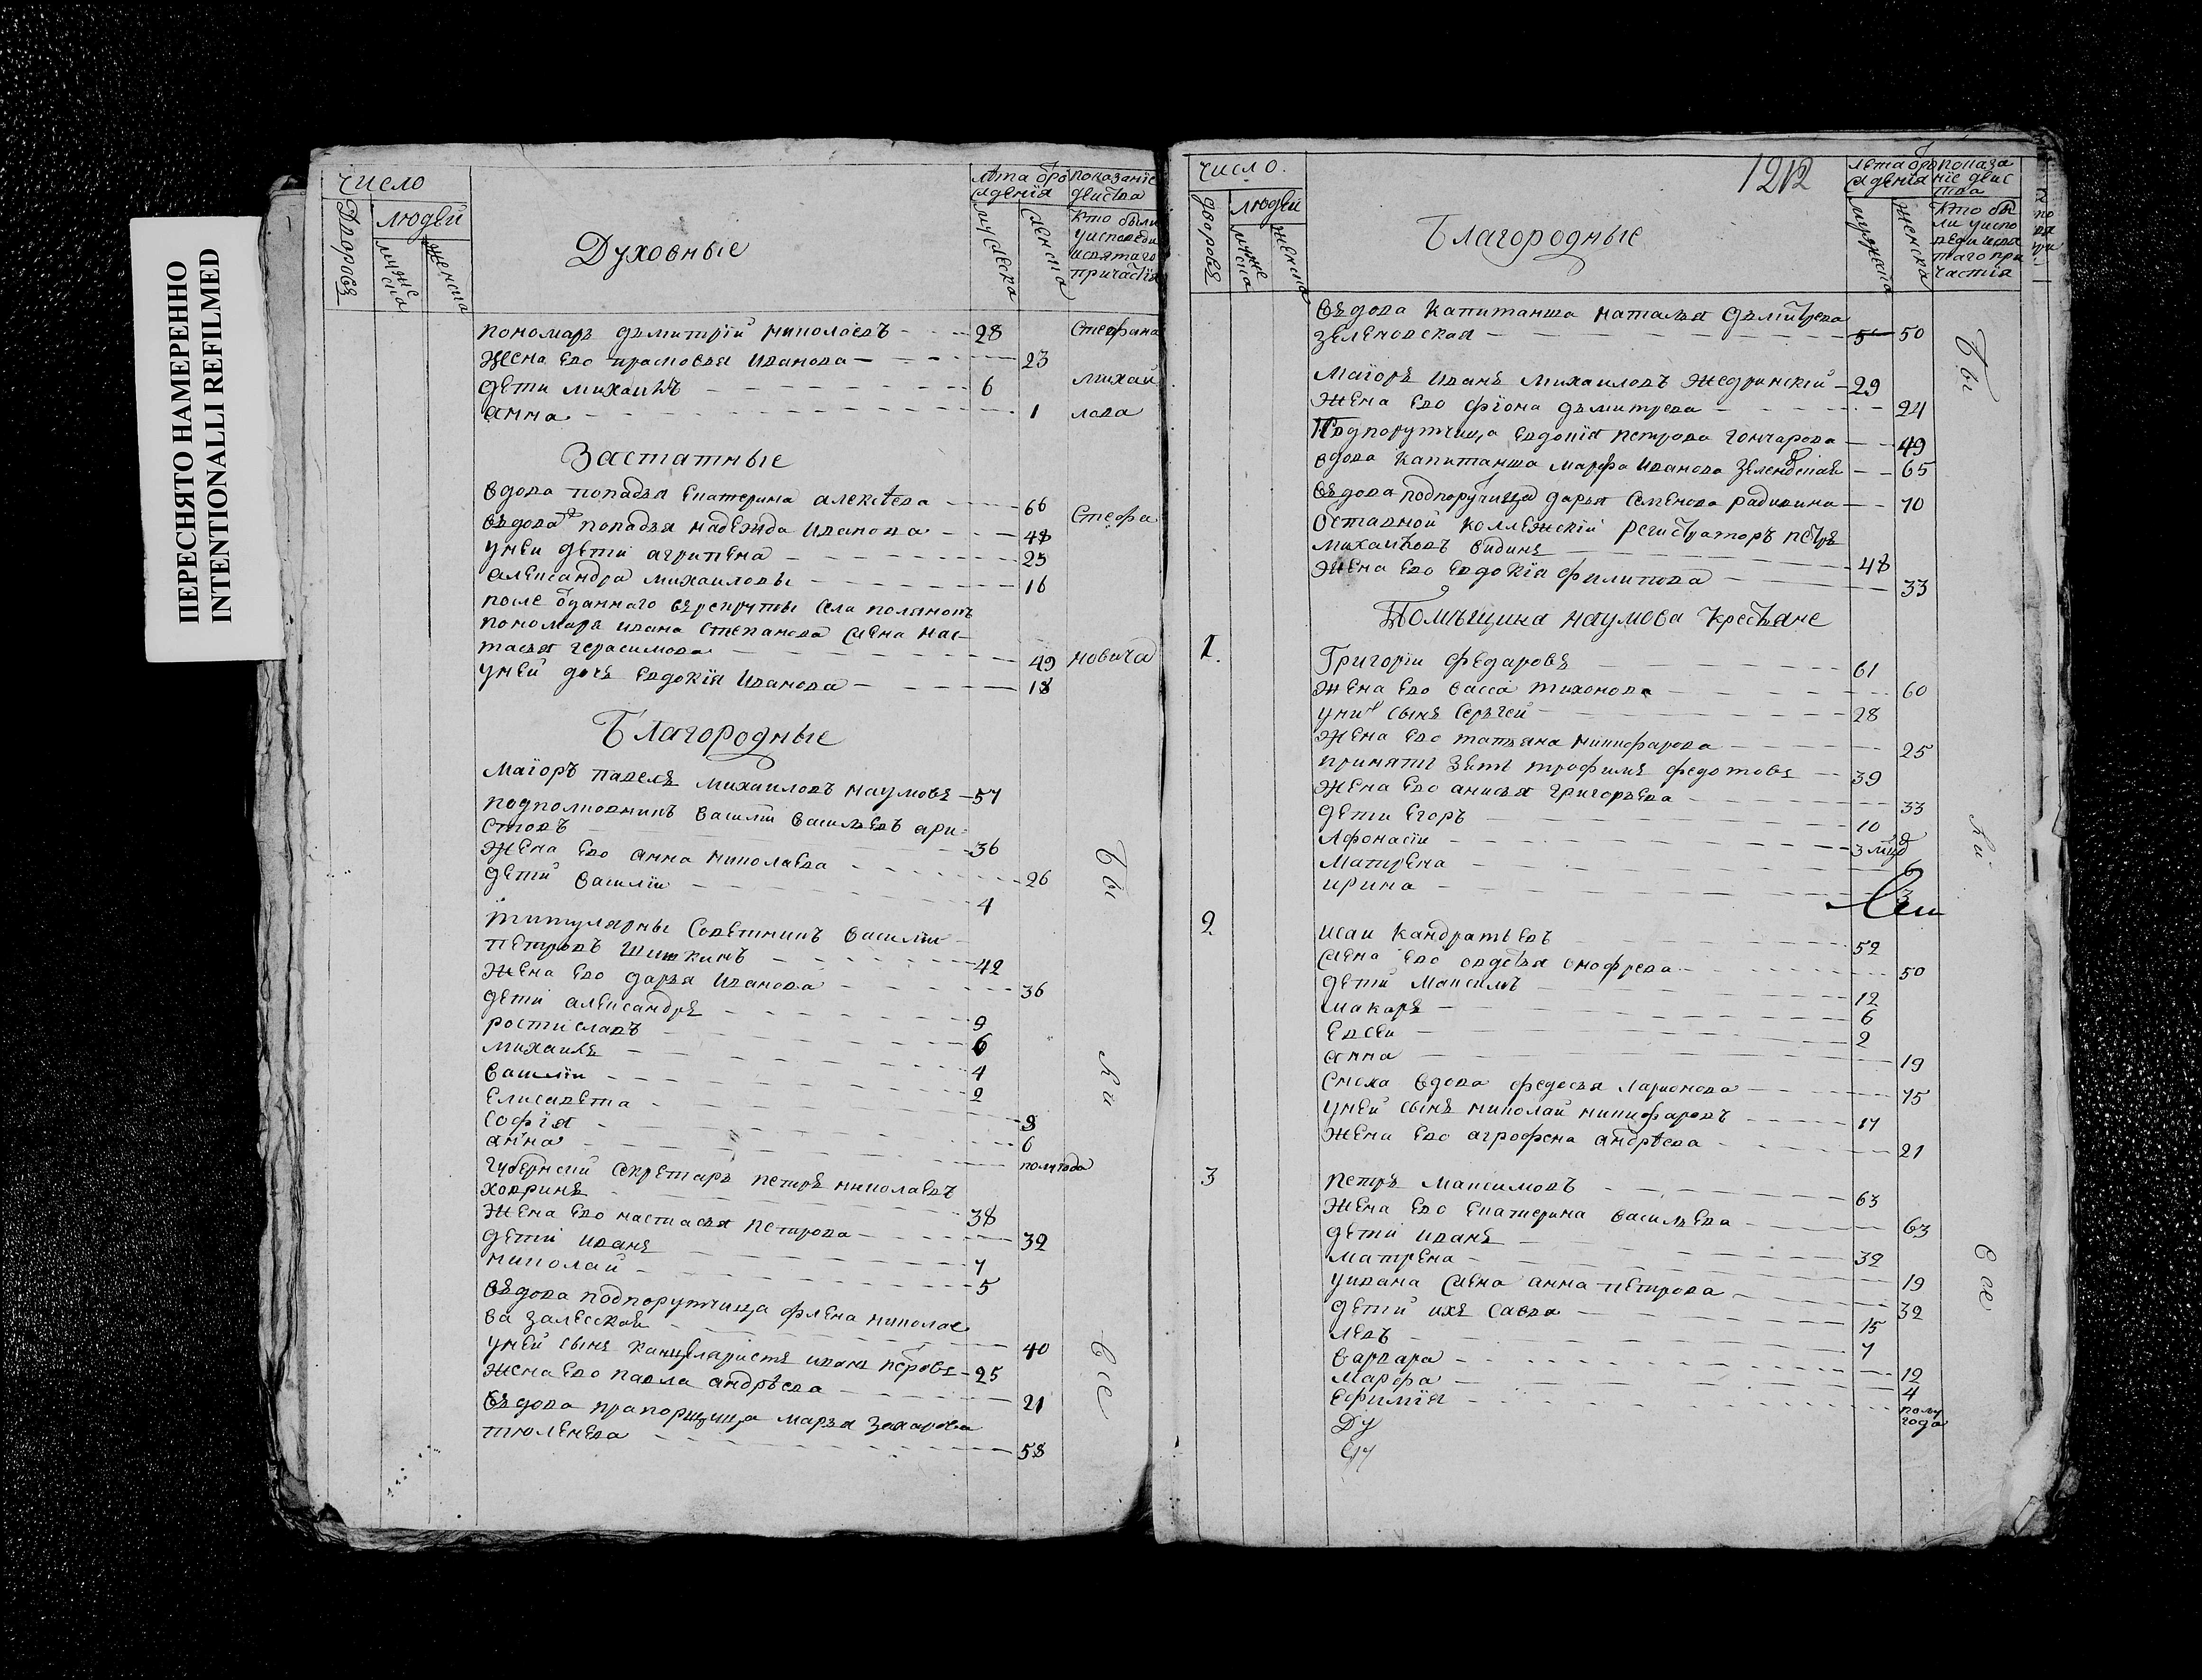 ПЕРЕСНЯТО НАМЕРЕННО
INTENTIONALLI REFILMED
число
Дворовъ
людей
мужеска
женска
Духовные
мужеска
женска
Показание
действа
пономарь дьмитрий николаевъ 28
Жена ево прасковья Иванова 23
дети михаилъ 6
анна 1
Застатные
вдова попадья Екатерина алексѣева 66
вьдова попадья надежда Иванова 48
унеи дети агрипена 25
александра михаиловы 16
после
пономаря ивана степанова жена нас
тасья герасимова 49
уней дочь Евдокїя Иванова 18
Благородные
маїоръ павелъ михаиловъ наумовъ 57
подполковникъ василїи васильевъ ари
стовъ 36
Жена ево анна николаева 26
дети василїи 4
титулярны советникъ василїи
петровъ шишкинъ 42
Жена ево дарья Иванова 36
дети александръ 9
ростиславъ 6
михаилъ 4
василїи 2
Елисавета 8
софїя 6
анна полугода
губернски секретарь петръ николаевъ
ховринъ 38
Жена ево настасья петрова 32
дети иванъ 7
николаи 5
вьдова подпорутчица николае
ва залесская 40
уней сынъ канцеляристъ иванъ петровъ 25
жена ево павла андрѣева 21
вьдова прапорщица марья захарова
тюленева 58
Бы
ли
все
число
дворовъ
людеи
мужеска
женска
1212
Благородные
мужеска
женска
вьдова капитанша наталья дьмитрева
зеленовская 50
Маїоръ иванъ михаиловъ Жедринскїй 29
Жена ево фїона дьмитрева 24
Подпорутчица евдокїя петрова гончарова 49
вдова капитанша марфа иванова зеленовская 65
вьдова подпорутчица дарья семенова радивина 70
оставной коллежскїй регистраторъ петръ
михаиловъ видинъ 48
Жена ево евдокїа филипова 33
Помѣщика наумова крестьяне
1. Григорїи федаровъ 61
Жена ево васса тихонова 60
уних сынъ серьгеи 28
Жена ево татьяна никифарова 25
приняты зять трофимъ федотовъ 39
Жена ево анисья григорьева 33
дети егоръ 10
Афонасїи 3
Матрена 6
ирина
2 исаи кандратьевъ 52
жена ево овдотья онофрева 50
дети максимъ 12
макаръ 6
евсеи 2
анна 19
сноха вдова федосья ларионова 75
уней сынъ николаи никифаровъ 17
Жена ево агрофена андрѣева 21
3 петръ максимовъ 63
Жена ево екатерина васильева 63
дети иванъ 32
матрена 19
уивана жена анна петрова 32
дети ихъ савва 15
левъ 7
варвара 12
марфа 4
Ефимїя полугода
ДУ
Бы
ли
все